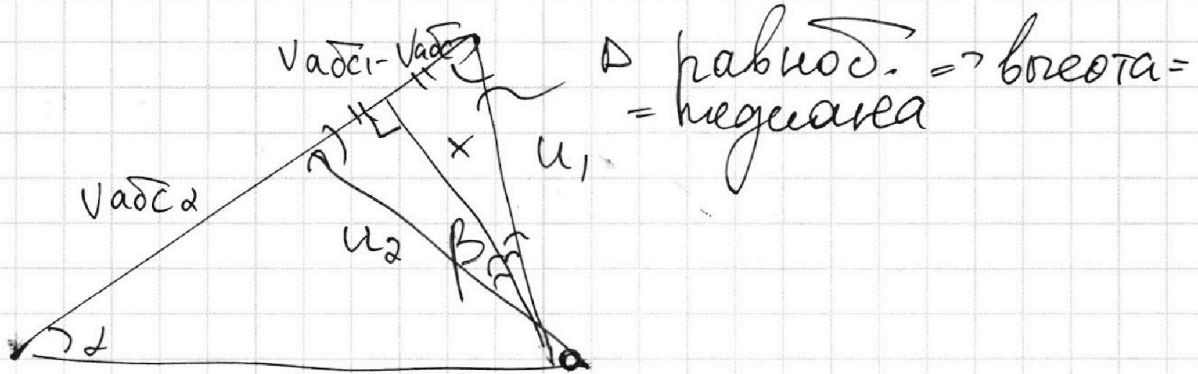 Vабс1-Vабс
△ равноб. => высота =
= медиана
x
u1
Vабс2
u2
β
α